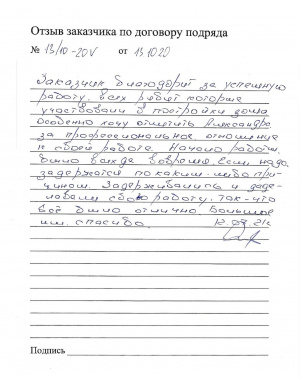 Отзыв заказчика по договору подряда
№ 13/10-20V от 13.10.20
Заказчик благодарит за успешную
работу всех ребят которые
участвовали в постройки дома
Особенно хочу отметить Александра
за профессиональное отношение
к своей работе. Начало работы
было всегда вовремя, если надо
задержатся по каким-либо при-
чинам. Задерживались и доде-
лывали свою работу. Так-что
всё было отлично. Большое
им спасибо. 12.09.21г
Подпись